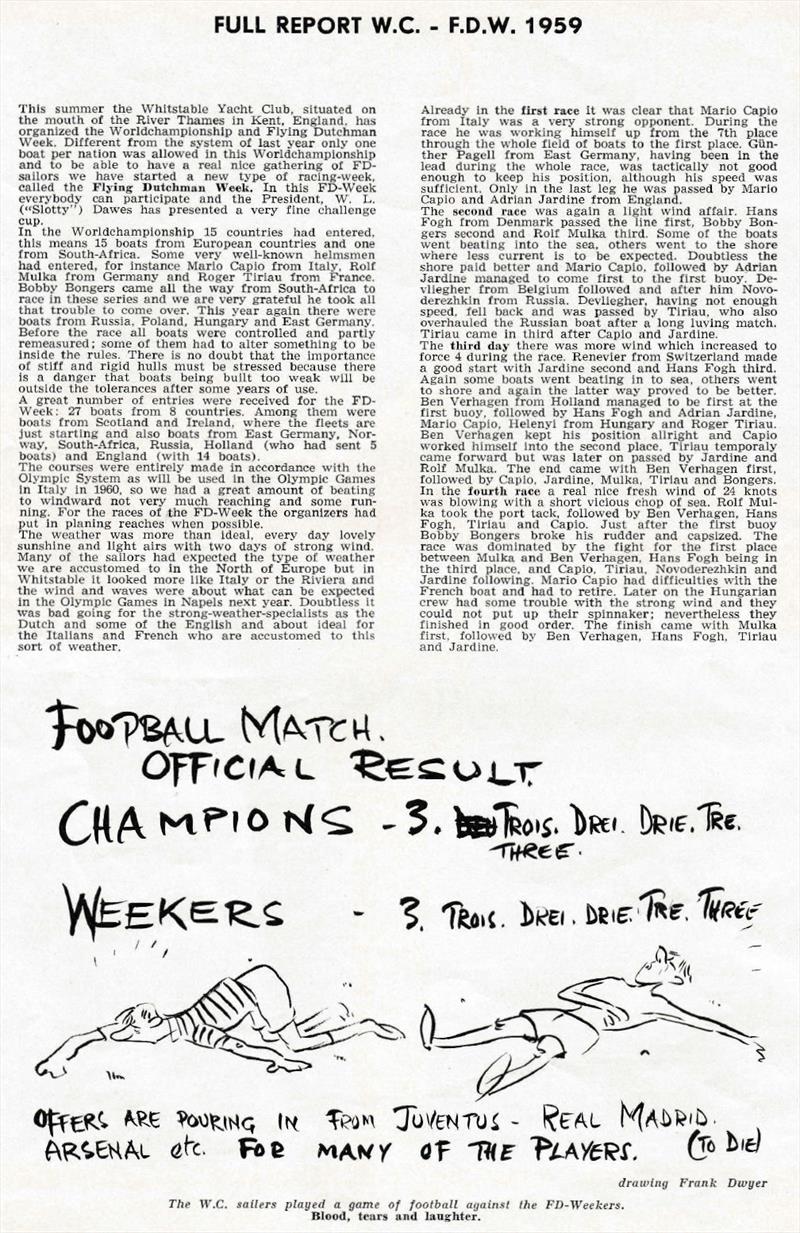 FULL REPORT W.C. - F.D.W. 1959
This summer the Whitstable Yacht Club, situated on
the mouth of the River Thames in Kent, England, has
organized the Worldchampionship and Flying Dutchman
Week. Different from the system of last year only one
boat per nation was allowed in this Worldchampionship
and to be able to have a real nice gathering of FD-
sailors we have started a new type of racing-week,
called the Flying Dutchman Week. In this FD-Week
everybody can participate and the President, W. L.
("Slotty") Dawes has presented a very fine challenge
cup.
In the Worldchampionship 15 countries had entered,
this means 15 boats from European countries and one
from South-Africa. Some very well-known helmsmen
had entered, for instance Mario Capio from Italy, Rolf
Mulka from Germany and Roger Tiriau from France.
Bobby Bongers came all the way from South-Africa to
race in these series and we are very grateful he took all
that trouble to come over. This year again there were
boats from Russia, Poland, Hungary and East Germany.
Before the race all boats were controled and partly
remeasured; some of them had to alter something to be
inside the rules. There is no doubt that the importance
of stiff and rigid hulls must be stressed because there
is a danger that boats being built too weak will be
outside the tolerances after some years of use.
A great number of entries were received for the FD-
Week: 27 boats from 8 countries. Among them were
boats from Scotland and Ireland, where the fleets are
just starting and also boats from East Germany, Nor-
way, South-Africa, Russia, Holland (who had sent 5
boats) and England (with 14 boats).
The courses were entirely made in accordance with the
Olympic System as will be used in the Olympic Games
in Italy in 1960, so we had a great amount of beating
to windward not very much reaching and some run-
ning. For the races of the FD-Week the organizers had
put in planing reaches when possible.
The weather was more than ideal, every day lovely
sunshine and light airs with two days of strong wind.
Many of the sailors had expected the type of weather
we are accustomed to in the North of Europe but in
Whitstable it looked more like Italy or the Riviera and
the wind and waves were about what can be expected
in the Olympic Games in Napels next year. Doubtless it
was bad going for the strong-weather-specialists as the
Dutch and some of the English and about ideal for
the Italians and French who are accustomed to this
sort of weather.
Already in the first race it was clear that Mario Capio
from Italy was a very strong opponent. During the
race he was working himself up from the 7th place
through the whole field of boats to the first place. Gün-
ther Pagell from East Germany, having been in the
lead during the whole race, was tactically not good
enough to keep his position, although his speed was
sufficient. Only in the last leg he was passed by Mario
Capio and Adrian Jardine from England.
The second race was again a light wind affair. Hans
Fogh from Denmark passed the line first, Bobby Bon-
gers second and Rolf Mulka third. Some of the boats
went beating into the sea, others went to the shore
where less current is to be expected. Doubtless the
shore paid better and Mario Capio, followed by Adrian
Jardine managed to come first to the first buoy. De-
vliegher from Belgium followed and after him Novo-
derezhkin from Russia. Devliegher, having not enough
speed, fell back and was passed by Tiriau, who also
overhauled the Russian boat after a long luving match.
Tiriau came in third after Capio and Jardine.
The third day there was more wind which increased to
force 4 during the race. Renevier from Switzerland made
a good start with Jardine second and Hans Fogh third.
Again some boats went beating in to sea, others went
to shore and again the latter way proved to be better.
Ben Verhagen from Holland managed to be first at the
first buoy, followed by Hans Fogh and Adrian Jardine,
Mario Capio, Helenyi from Hungary and Roger Tiriau.
Ben Verhagen kept his position allright and Capio
worked himself into the second place. Tiriau temporaly
came forward but was later on passed by Jardine and
Rolf Mulka. The end came with Ben Verhagen first,
followed by Capio, Jardine, Mulka, Tiriau and Bongers.
In the fourth race a real nice fresh wind of 24 knots
was blowing with a short vicious chop of sea. Rolf Mul-
ka took the port tack, followed by Ben Verhagen, Hans
Fogh, Tiriau and Capio. Just after the first buoy
Bobby Bongers broke his rudder and capsized. The
race was dominated by the fight for the first place
between Mulka and Ben Verhagen, Hans Fogh being in
the third place and Capio, Tiriau, Novoderezhkin and
Jardine following. Mario Capio had difficulties with the
French boat and had to retire. Later on the Hungarian
crew had some trouble with the strong wind and they
could not put up their spinnaker; nevertheless they
finished in good order. The finish came with Mulka
first, followed by Ben Verhagen, Hans Fogh, Tiriau
and Jardine.
FOOTBALL MATCH.
OFFICIAL RESULT
CHAMPIONS - 3. TROIS. DREI. DRIE. TRE.
THREE.
WEEKERS - 3. TROIS. DREI. DRIE. TRE. THREE
OFFERS ARE POURING IN FROM JUVENTUS - REAL MADRID.
ARSENAL etc. FOR MANY OF THE PLAYERS. (TO DIE)
drawing Frank Dwyer
The W.C. sailers played a game of football against the FD-Weekers.
Blood, tears and laughter.